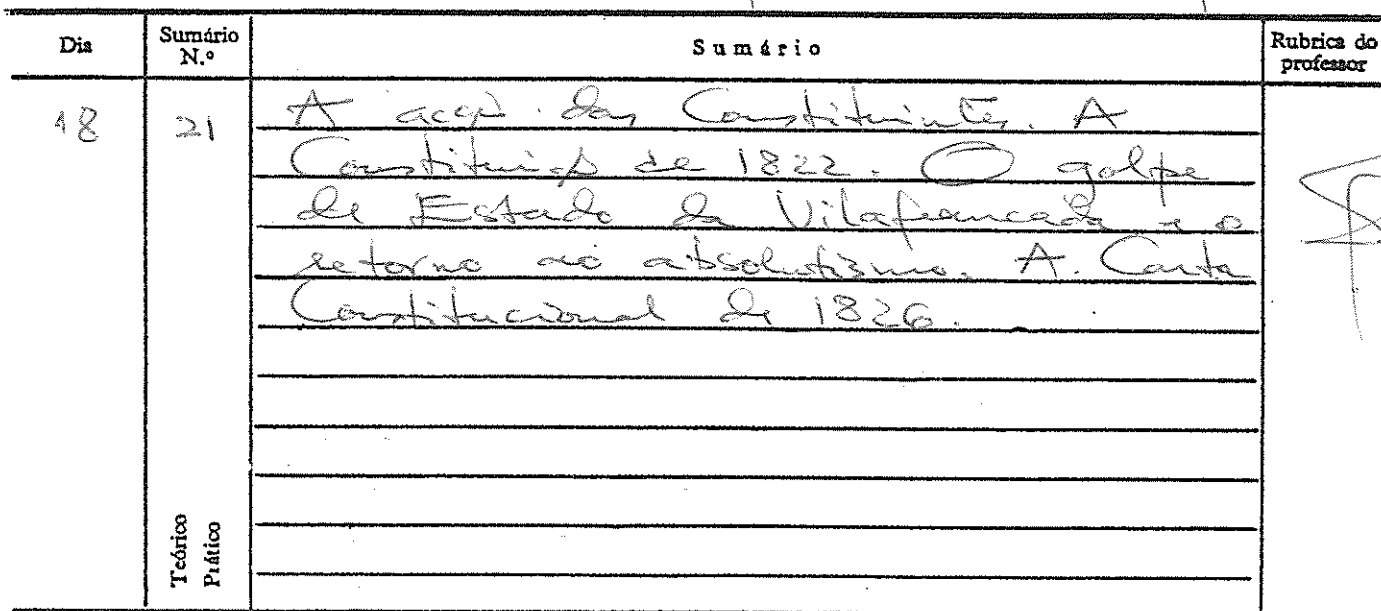 Dia
Sumário N.º
Sumário
Rubrica do professor
18
21
A acção das Constituintes. A
Constituição de 1822. O golpe
de Estado da Vilafrancada e o
retorno ao absolutismo. A Carta
Constitucional de 1826.
Teórico
Prático